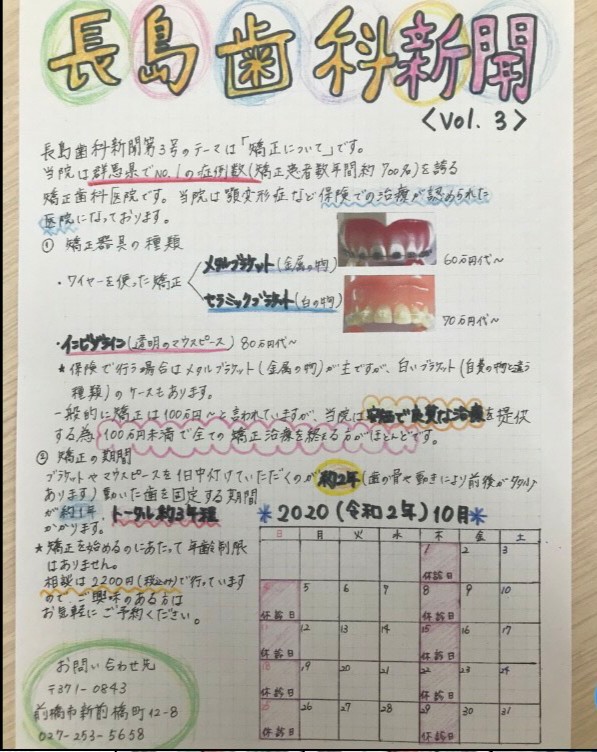 長島歯科新聞
<Vol. 3>
長島歯科新聞第3号のテーマは「矯正について」です。
当院は群馬県でNO.1の症例数(矯正患者数年間約700名)を誇る
矯正歯科医院です。当院は顎変形症など保険での治療が認められた
医院になっております。
① 矯正器具の種類
・ワイヤーを使った矯正
メタルブラケット(金属の物)
60万円代~
セラミックブラケット(白の物)
70万円代~
・インビザライン(透明のマウスピース) 80万円代~
★ 保険で行う場合はメタルブラケット(金属の物)が主ですが、白いブラケット(自費の物と違う
種類)のケースもあります。
一般的に矯正は100万円~と言われていますが、当院は安価で良質な治療を提供
する為、100万円未満で全ての矯正治療を終える方がほとんどです。
② 矯正の期間
ブラケットやマウスピースを1日中付けていただくのが約2年(歯の骨や動きにより前後が
あります)動いた歯を固定する期間
が約1年、トータル約3年程
かかります。
★ 矯正を始めるのにあたって年齢制限
はありません。
相談は2200円(税込み)で行っています
ので、ご興味のある方は
お気軽にご予約ください。
お問い合わせ先
〒371-0843
前橋市新前橋町12-8
027-253-5658
*2020(令和2年)10月*
日 月 火 水 木 金 土
1 2 3
休診日
4 5 6 7 8 9 10
休診日 休診日
11 12 13 14 15 16 17
休診日 休診日
18 19 20 21 22 23 24
休診日 休診日
25 26 27 28 29 30 31
休診日 休診日